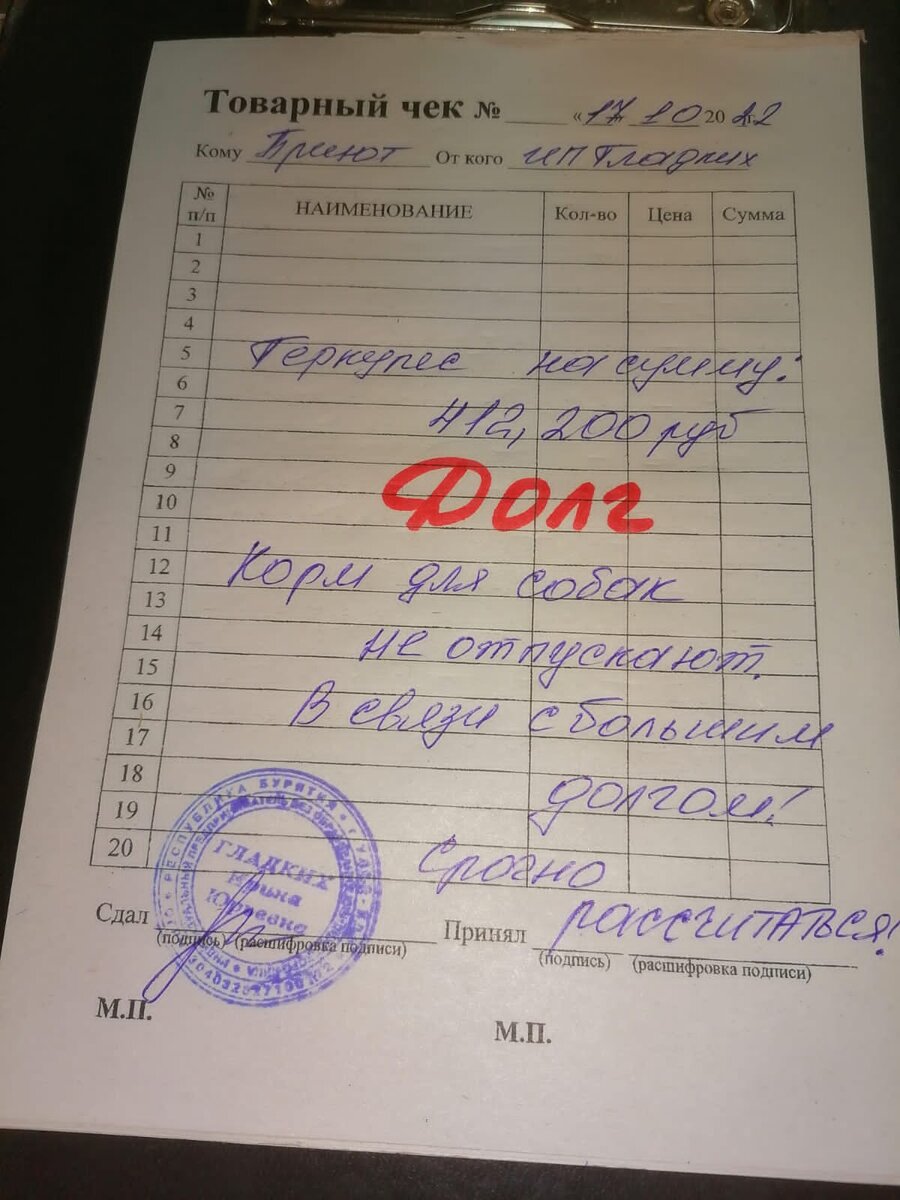 Товарный чек № «17» 10 2022
Кому Приют От кого ИП Гладких
№ п/п НАИМЕНОВАНИЕ Кол-во Цена Сумма
1
2
3
4
5 Геркулес на сумму:
6
7 412,200 руб
8
9
10 Долг
11
12 Корм для собак
13
14 не отпускают.
15
16 В связи с большим
17
18 долгом!
19
20 Срочно
Сдал Принял рассчиТАТЬСЯ!
(подпись) (расшифровка подписи) (подпись) (расшифровка подписи)
М.П. М.П.
РЕСПУБЛИКА БУРЯТИЯ
ГЛАДКИХ
Юрьевна